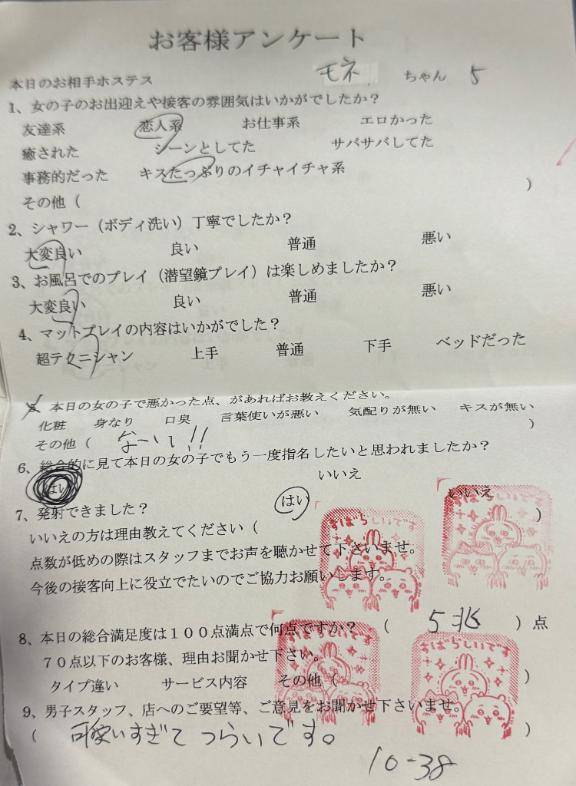 お客様アンケート
本日のお相手ホステス モネ ちゃん 5
1、女の子のお出迎えや接客の雰囲気はいかがでしたか?
友達系 恋人系 お仕事系 エロかった
癒された シーンとしてた サバサバしてた
事務的だった キスたっぷりのイチャイチャ系
その他( )
2、シャワー(ボディ洗い)丁寧でしたか?
大変良い 良い 普通 悪い
3、お風呂でのプレイ(潜望鏡プレイ)は楽しめましたか?
大変良い 良い 普通 悪い
4、マットプレイの内容はいかがでした?
超テクニシャン 上手 普通 下手 ベッドだった
本日の女の子で悪かった点、があればお教えください。
化粧 身なり 口臭 言葉使いが悪い 気配りが無い キスが無い
その他( なーいし!! )
6、総合的に見て本日の女の子でもう一度指名したいと思われましたか?
はい いいえ
7、発射できました? はい いいえ
いいえの方は理由教えてください( )
点数が低めの際はスタッフまでお声を聴かせて下さいませ。
今後の接客向上に役立てたいのでご協力お願いします。
すばらしいです
すばらしいです
8、本日の総合満足度は100点満点で何点ですか?( 5兆 )点
70点以下のお客様、理由お聞かせ下さい。
タイプ違い サービス内容 その他( )
すばらしいです
すばらしいです
9、男子スタッフ、店へのご要望等、ご意見をお聞かせ下さいませ
( 可愛いすぎてつらいです。 )
10-38